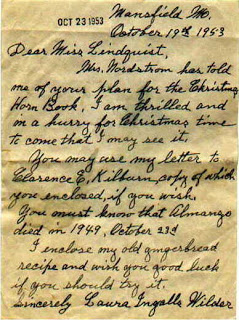 OCT 23 1953
Mansfield Mo.
October 19th 1953
Dear Miss Lindquist,
Mrs. Nordstrom has told
me of your plan for the Christmas
Horn Book. I am thrilled and
in a hurry for Christmas time
to come that I may see it.
You may use my letter to
Clarence E. Kilburn, copy of which
you enclosed, if you wish.
You must know that Almanzo
died in 1949, October 23d
I enclose my old gingerbread
recipe and wish you good luck
if you should try it.
Sincerely Laura Ingalls Wilder